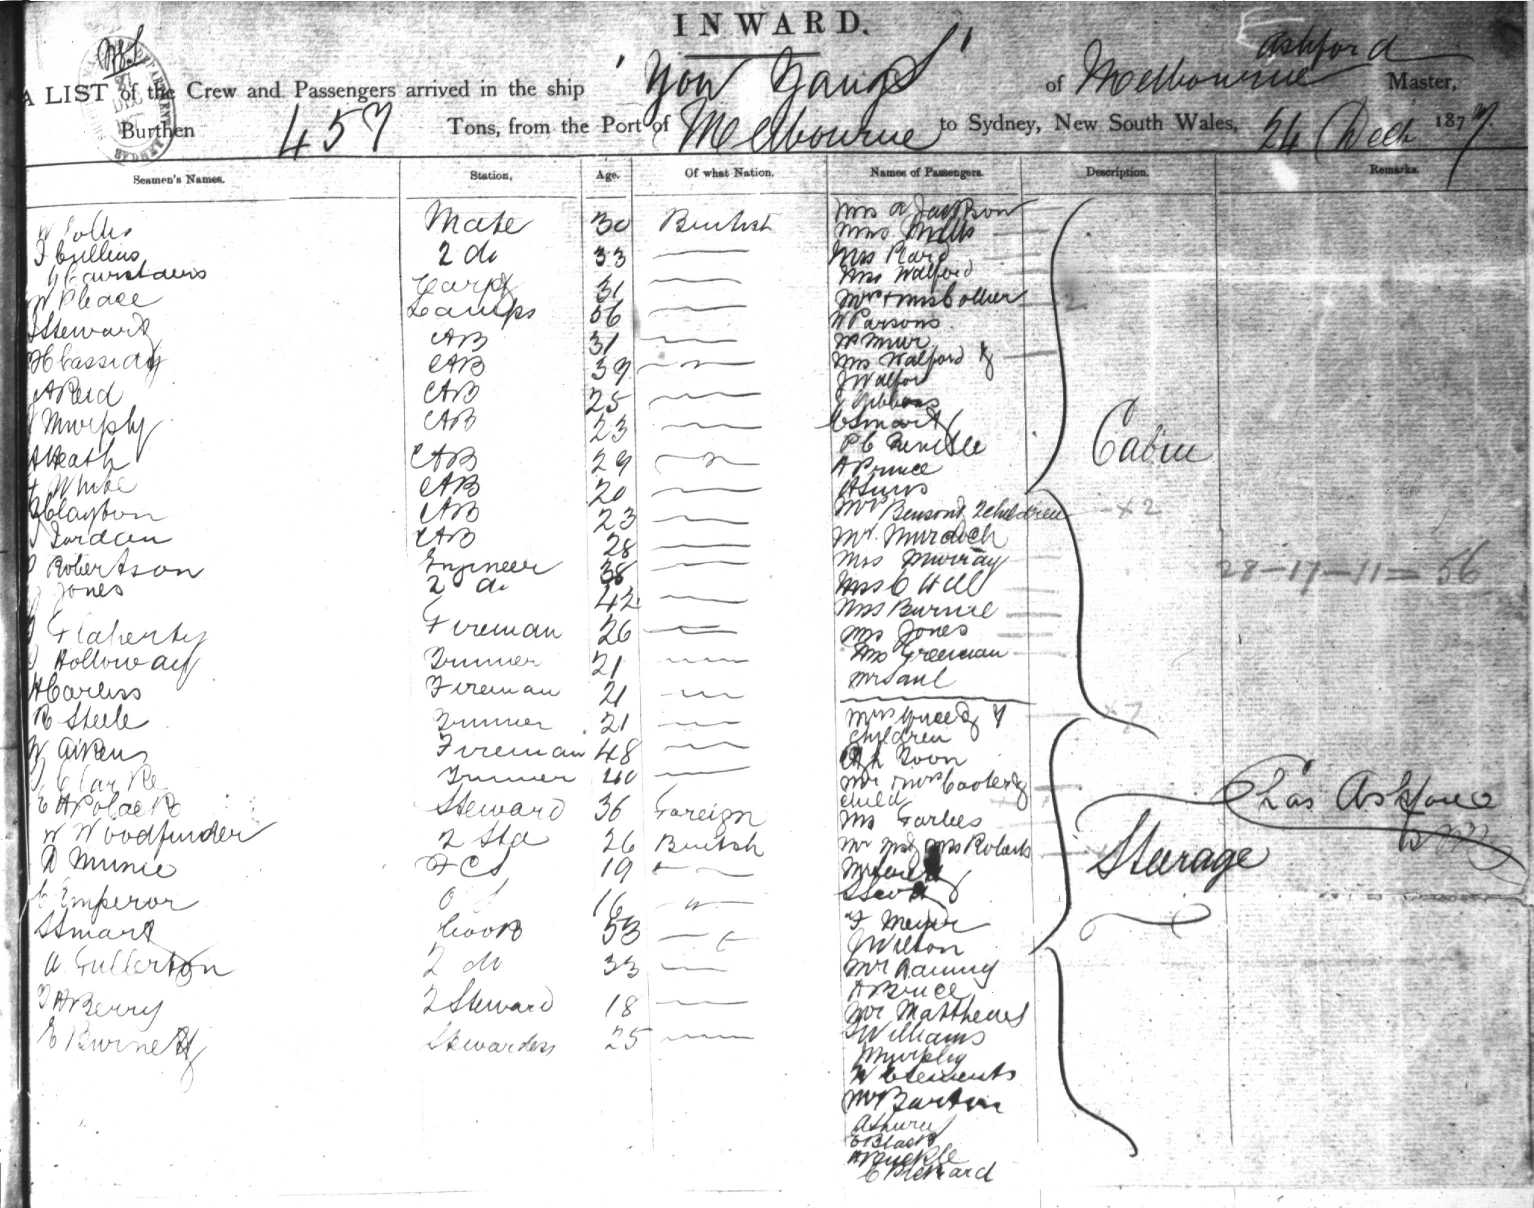 INWARD.
A LIST of the Crew and Passengers arrived in the ship "You Yangs" of Melbourne Ashford Master,
Burthen 457 Tons, from the Port of Melbourne to Sydney, New South Wales, 24 Decr 1877
Seamen's Names. Station, Age. Of what Nation. Names of Passengers. Description. Remarks.
Mate 30 British
2 do 33
Carpr 31
W Pleace Lamps 56
J Stewart AB 31
H Cassidy AB 39
J A Reid AB 25
J Murphy AB 23
A Heath AB 29
White AB 20
H Clayton AB 23
J Jordan AB 28
Robertson Engineer 38
J Jones 2 do 42
J Flaherty Fireman 26
J Holloway Trimmer 21
A Carliss Fireman 21
R Steele Trimmer 21
W Aikens Fireman 48
J Clarke Trimmer 40
C A Polack Steward 36 Foreign
W Woodfinder 2 Std 26 British
A Munie FCS 19
C Emperor O S 16
S Smart Cook 53
A. Fullerton 2 do 33
F A Berry 2 Steward 18
E Burnett Stewardess 25
Mrs A Jackson
Miss Mills
Mrs Raird
Miss Walford
Mr & Mrs Collier 2
W Parsons
W Muir
Mrs Walford &
J Walford
J Gibbons
C Smart
P C
A Prince
A Sims
Mrs Benson & 2 children x 2
Mr. Murdoch
Mrs Murray
Mrs C Hill
Mrs Burnie
Mrs Jones
Mrs Freeman
Mr Saul
Cabin
28-17-11=56
Mrs 7
children
Ah Toon
Mr & Mrs Cooley &
child
Mrs Forbes
Mr and Mrs Roberts
Scott
F Meyer
J Wilton
Mr Ranny
A Bruce
Mr Matthews
J Williams
Murphy
W Clements
Mr Barton
C Black
A Buckle
C Blevard
Steerage
Chas Ashford